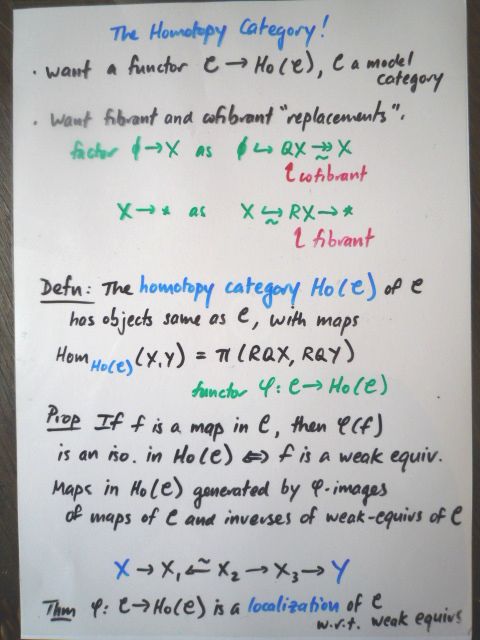 The Homotopy Category!
· want a functor C → Ho(C), C a model
category
· Want fibrant and cofibrant "replacements".
factor ∅→X as ∅ ↪ QX ↠̃ X
cofibrant
X → * as X ↪̃ RX ↠ *
fibrant
Defn: The homotopy category Ho(C) of C
has objects same as C, with maps
Hom_Ho(C) (X,Y) = π(RQX, RQY)
functor φ: C → Ho(C)
Prop If f is a map in C, then φ(f)
is an iso. in Ho(C) ⇔ f is a weak equiv.
Maps in Ho(C) generated by φ-images
of maps of C and inverses of weak-equivs of C
X → X₁ ←̃ X₂ → X₃ → Y
Thm φ: C → Ho(C) is a localization of C
w.r.t. weak equivs